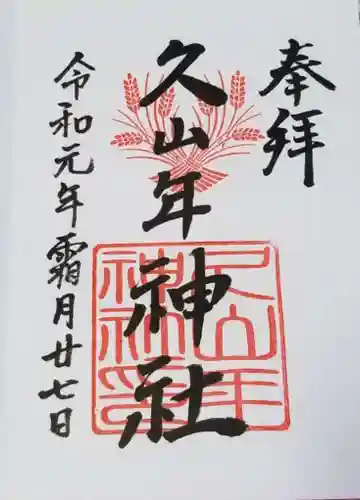 奉拝
久山年神社
久山年神社印
令和元年霜月廿七日